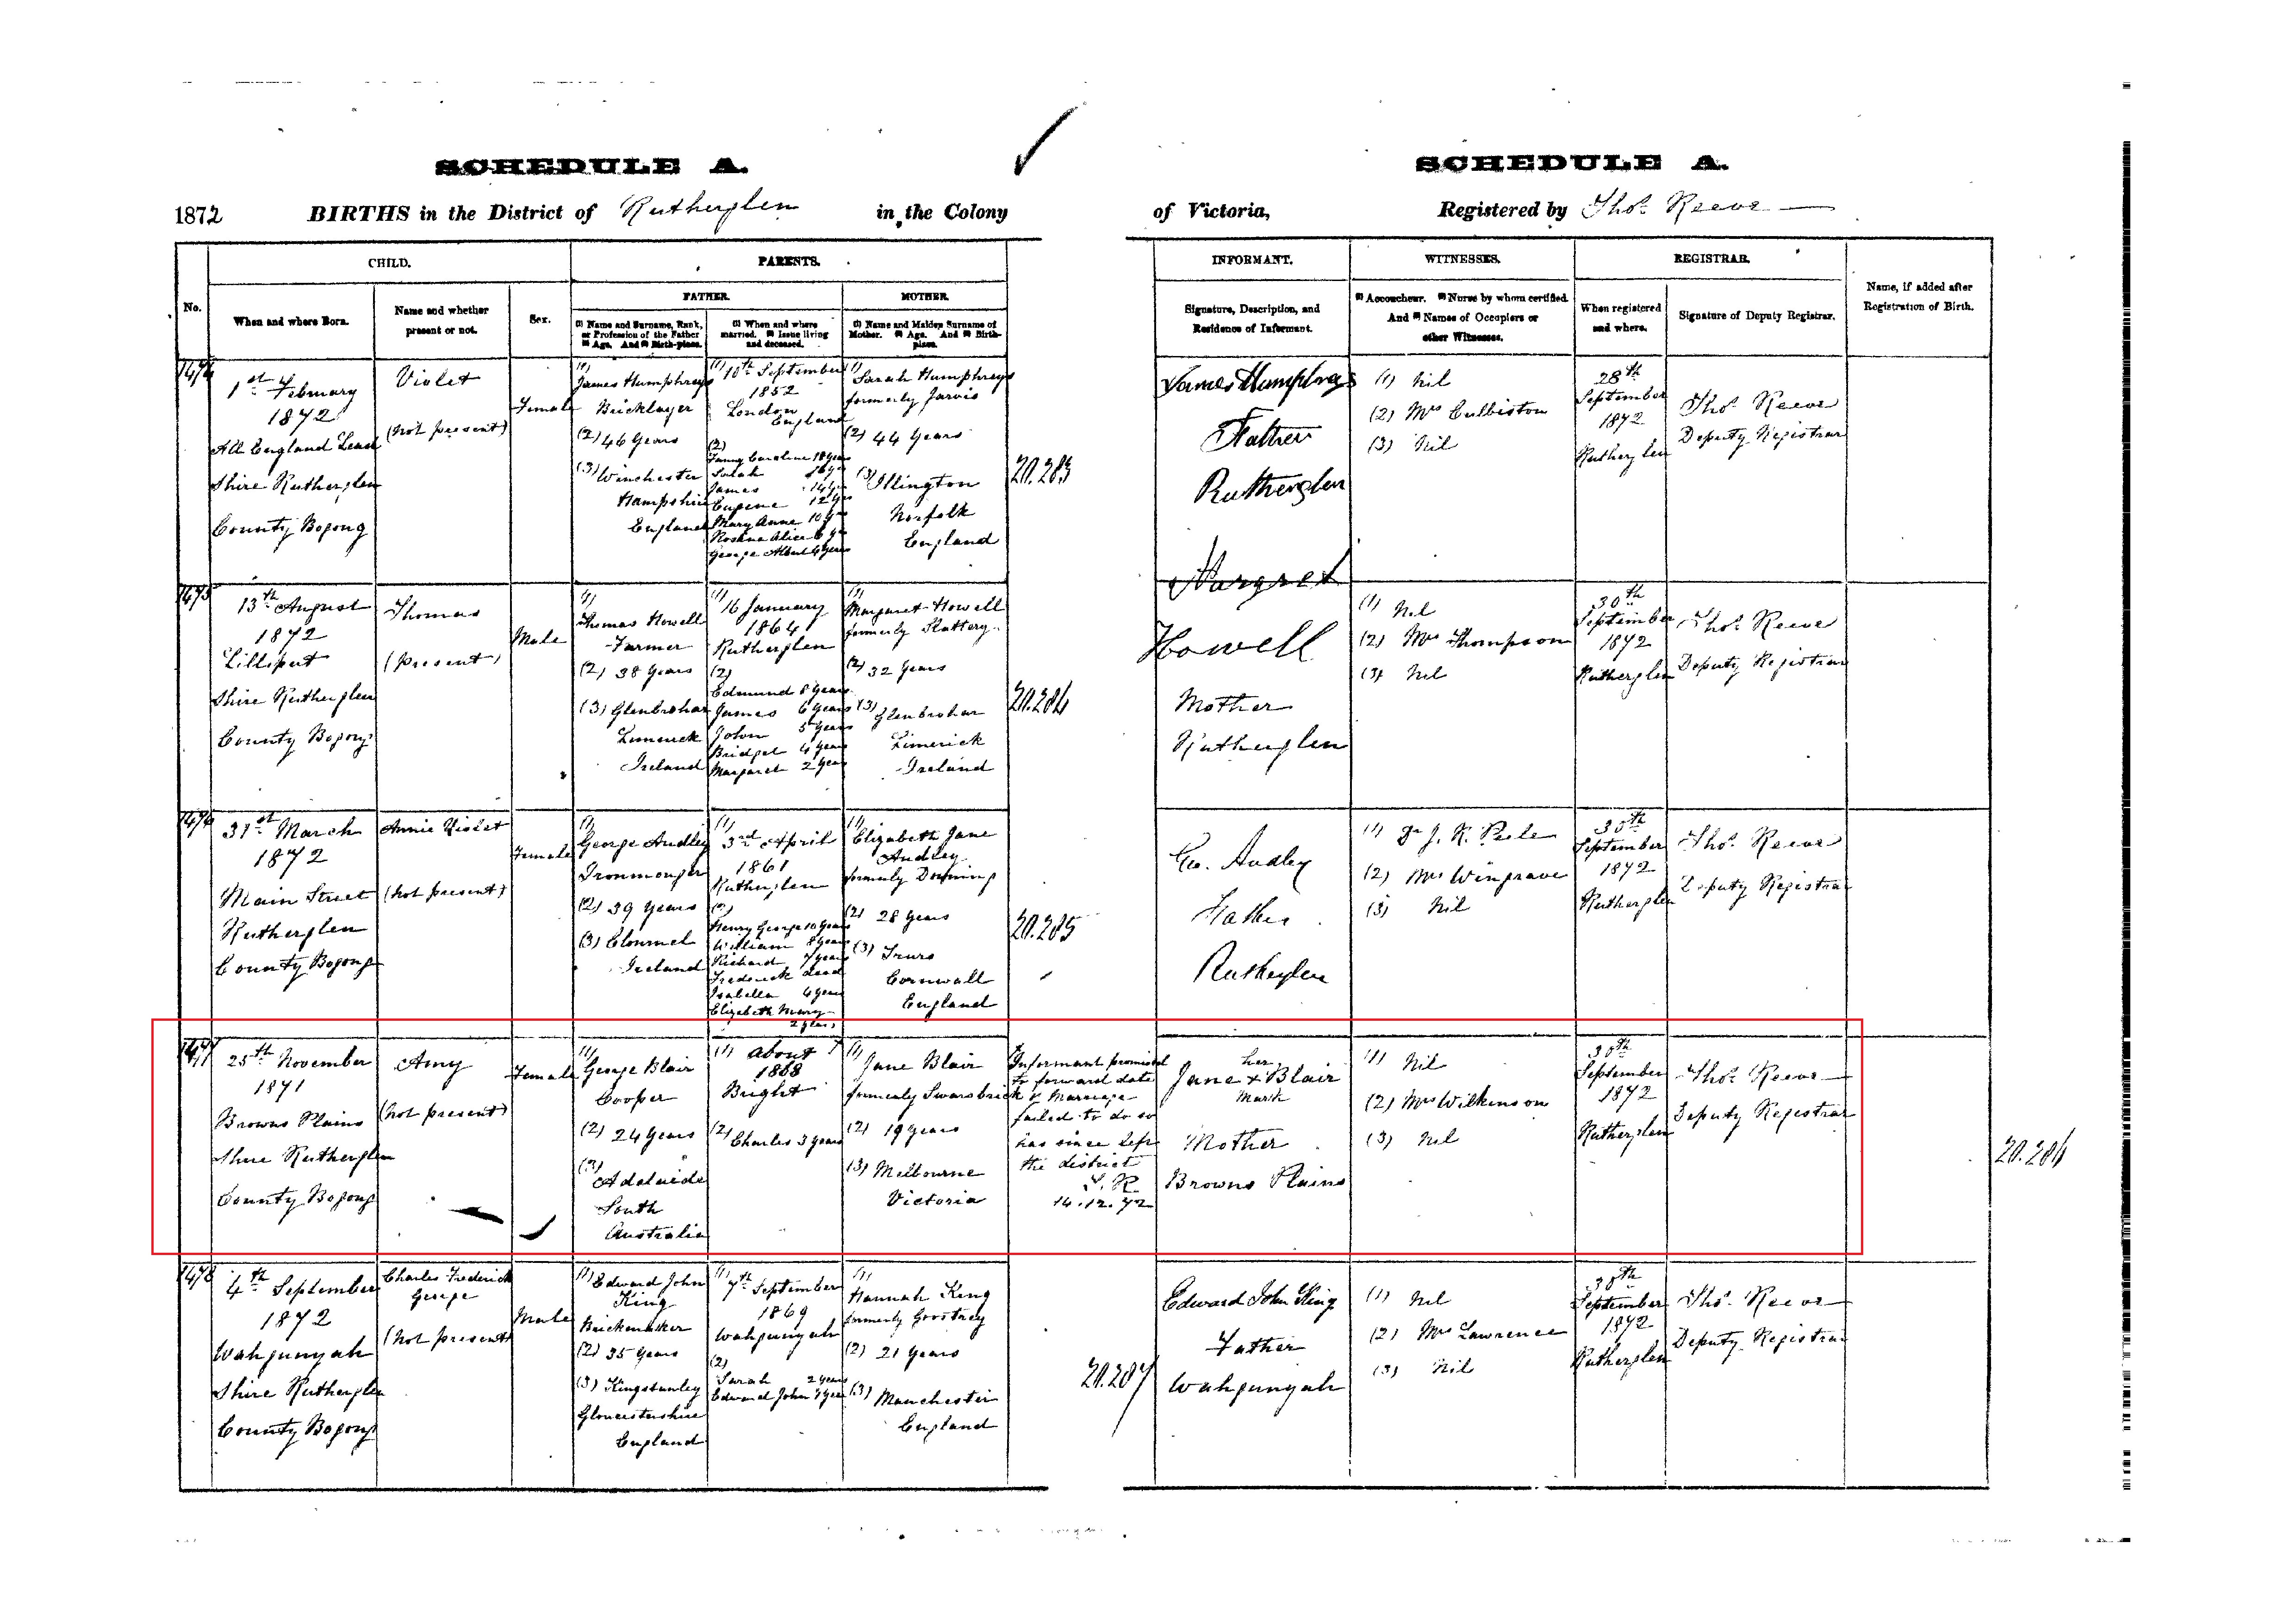 SCHEDULE A.
1872 BIRTHS in the District of Rutherglen in the Colony
No.
CHILD.
When and where Born.
Name and whether
present or not.
Sex.
PARENTS.
FATHER.
(1) Name and Surname, Rank,
or Profession of the Father
(2) Age. And (3) Birth-place.
(1) When and where
married. (2) Issue living
and deceased.
MOTHER.
(1) Name and Maiden Surname of
Mother. (2) Age. And (3) Birth-
place.
SCHEDULE A.
of Victoria, Registered by Thos. Reeve
INFORMANT.
Signature, Description, and
Residence of Informant.
WITNESSES.
(1) Accoucheur. (2) Nurse by whom certified.
And (3) Names of Occupiers or
other Witnesses.
REGISTRAR.
When registered
and where.
Signature of Deputy Registrar.
Name, if added after
Registration of Birth.
1474
1st February
1872
All England Lead
Shire Rutherglen
County Bogong
Violet
(not present)
Female
(1)
James Humphreys
Bricklayer
(2) 46 Years
(3) Winchester
Hampshire
England
(1) 10th September
1852
London
England
(2)
Fanny Caroline 18 years
Sarah 16 yrs
James 14 yrs
Eugene 12 yrs
Mary Anne 10 yrs
Rosina Alice 6 yrs
George Albert 4 years
(1)
Sarah Humphreys
formerly Jarvis
(2) 44 years
(3) Illington
Norfolk
England
20.283
James Humphreys
Father
Rutherglen
(1) Nil
(2) Mrs Culbiston
(3) Nil
28th
September
1872
Rutherglen
Thos. Reeve
Deputy Registrar
1475
13th August
1872
Lilliput
Shire Rutherglen
County Bogong
Thomas
(present)
Male
(1)
Thomas Howell
Farmer
(2) 38 Years
(3) Glenbrohan
Limerick
Ireland
(1) 16 January
1864
Rutherglen
(2)
Edmund 8 years
James 6 years
John 5 years
Bridget 4 years
Margaret 2 years
(1)
Margaret Howell
formerly Slattery
(2) 32 Years
(3) Glenbrohan
Limerick
Ireland
20.284
Margret
Howell
Mother
Rutherglen
(1) Nil
(2) Mrs Thompson
(3) Nil
30th
September
1872
Rutherglen
Thos. Reeve
Deputy Registrar
1476
31st March
1872
Main Street
Rutherglen
County Bogong
Annie Violet
(not present)
Female
(1)
George Audley
Ironmonger
(2) 39 Years
(3) Clonmel
Ireland
(1)
3rd April
1861
Rutherglen
(2)
Henry George 10 years
William 8 years
Richard 7 years
Frederick dead
Isabella 4 years
Elizabeth Mary
2 years
(1)
Elizabeth Jane
Audley
formerly Downing
(2) 28 years
(3) Truro
Cornwall
England
20.285
Geo. Audley
Father
Rutherglen
(1) Dr J. R.
(2) Mrs Wingrave
(3) Nil
30th
September
1872
Rutherglen
Thos. Reeve
Deputy Registrar
1477
25th November
1871
Browns Plains
Shire Rutherglen
County Bogong
Amy
(not present)
Female
(1)
George Blair
Cooper
(2) 24 Years
(3)
Adelaide
South
Australia
(1) About
1868
Bright
(2) Charles 3 years
(1)
Jane Blair
formerly Swarsbrick
(2) 19 years
(3) Melbourne
Victoria
Informant promised
to forward date
of Marriage
failed to do so
has since left
the district
T. R.
14.12.72
her
Jane x Blair
Mark
Mother
Browns Plains
(1) Nil
(2) Mrs Wilkinson
(3) Nil
30th
September
1872
Rutherglen
Thos. Reeve
Deputy Registrar
20.286
1478
4th September
1872
Wahgunyah
Shire Rutherglen
County Bogong
Charles Frederick
George
(not present)
Male
(1) Edward John
King
Brickmaker
(2) 35 Years
(3) Kingstanley
Gloucestershire
England
(1) 7th September
1869
Wahgunyah
(2)
Sarah 2 years
Edward John 1 year
(1)
Hannah King
formerly Goostrey
(2) 21 Years
(3) Manchester
England
20.287
Edward John King
Father
Wahgunyah
(1) Nil
(2) Mrs Lawrence
(3) Nil
30th
September
1872
Rutherglen
Thos. Reeve
Deputy Registrar